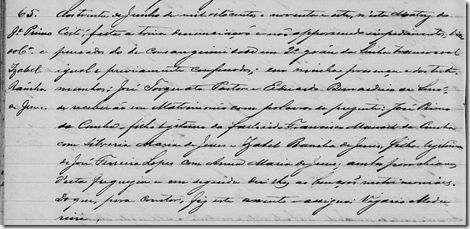 65. Aos trinta de Junho de mil oitocentos e noventa e sete, n'esta Matriz de
Jé Primo Coité, feita a denunciação e não apparecendo impedimento, dis-
e Cª. pensados do de consanguinidade em 2º gráo da linha transversal
Izabel igual e previamente confessados; em minha presença e das teste-
Rainha munhas, José Torquato Pastor e Eduardo Bernardino de
de Jesus. se receberão em Matrimonio com palavras de presente, José Primo
da Cunha filho legitimo do fallecido Francisco Manoel da Cunha
com Silveria Maria de Jesus e Izabel Rainha de Jesus, filha legitima
de José Ferreira Lopes com Anna Maria de Jesus; ambos parochianos
desta freguezia e em seguida dei-lhes as bençãos matrimoniaes.
Do que, para constar, fiz este assento e assignei. Vigario